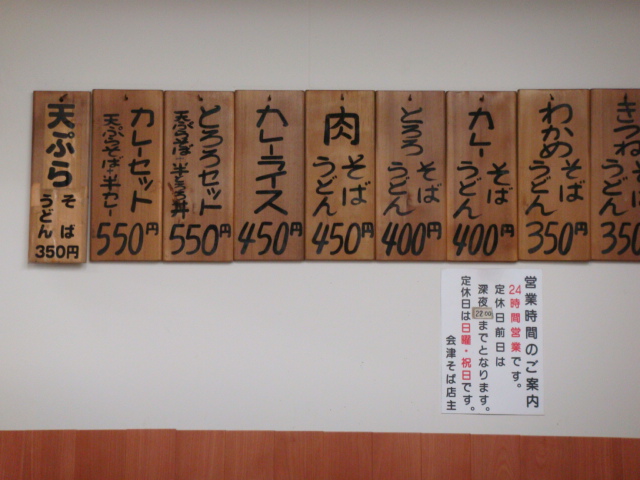 きつね
そば
うどん
350
わかめ
そば
うどん
350円
カレー
そば
うどん
400円
とろろ
そば
うどん
400円
肉
そば
うどん
450円
カレーライス
450円
とろろセット
天ぷらそば・半とろろ丼
550円
カレーセット
天ぷらそば・半カレー
550円
天ぷら
そば
うどん
350円
営業時間のご案内
24時間営業です。
定休日前日は
深夜22:00までとなります。
定休日は日曜・祝日です。
会津そば店主